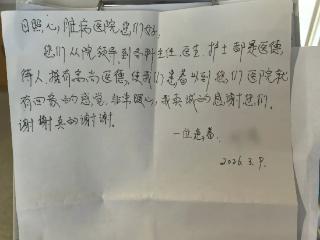 日照心脏病医院您们好:
您们从院领导到各科主任、医生、护士都是医德
待人 医德,使我们患者来到您们医院就
有回家的感觉,非常暖心,我真诚的感谢您们。
谢谢真的谢谢。
一位患者
2026.3.9.